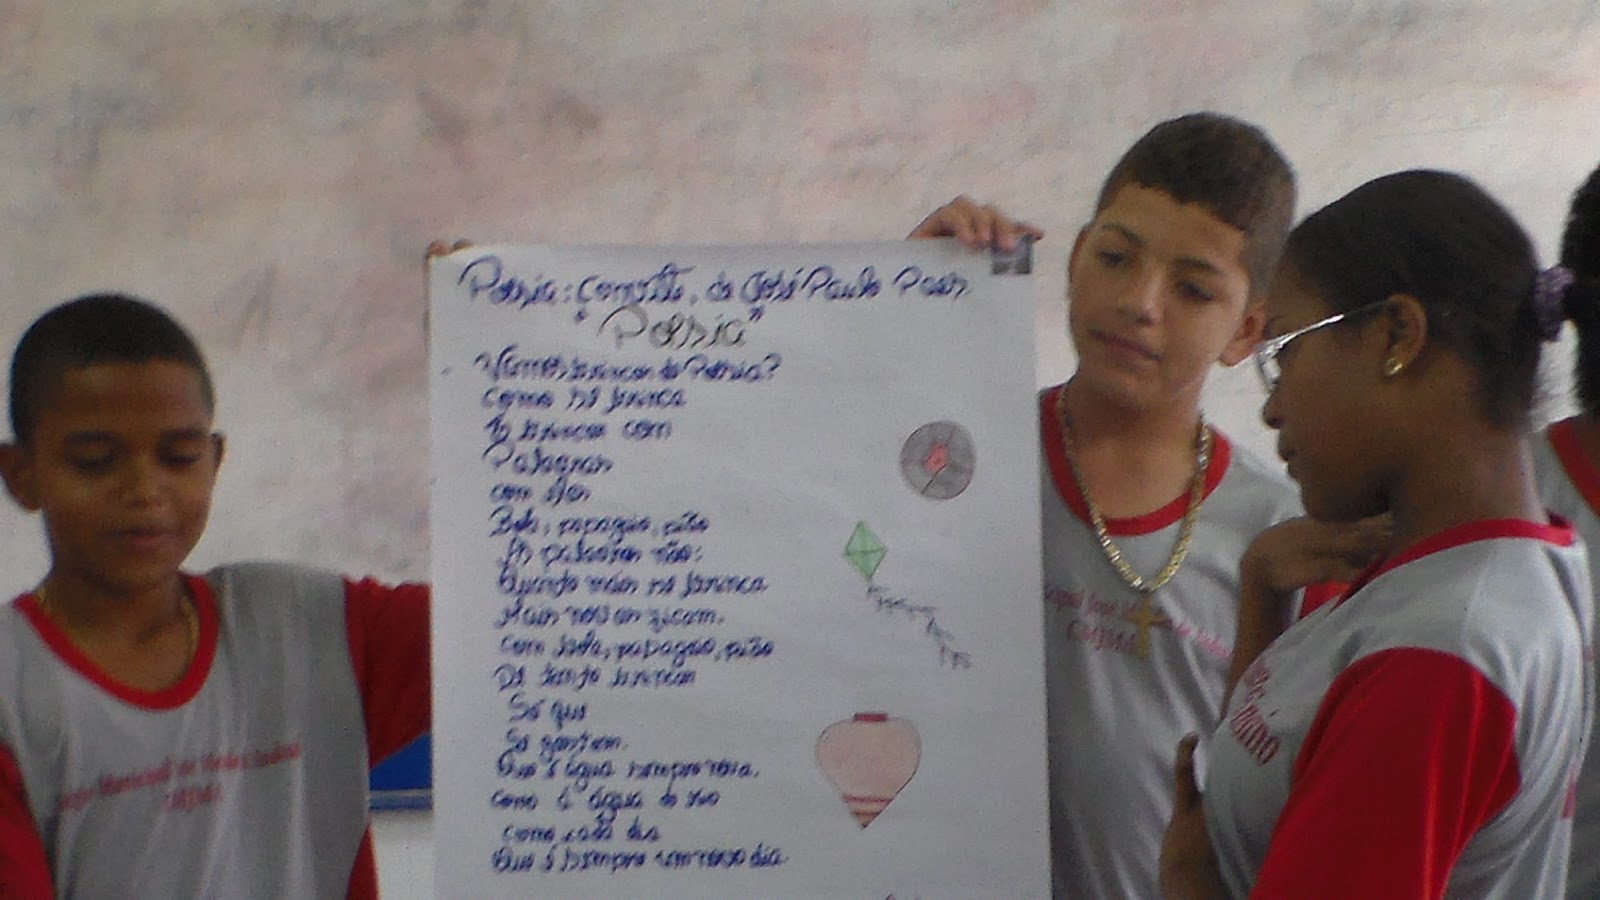 Poesia: Convite, de José Paulo Paes.
"Poesia"
Vamos brincar de Poesia?
como se brinca
brincar com
Palavras
com elas
Bola, papagaio, pião
As palavras não:
Quanto mais se brinca
Mais novas ficam.
com bola, papagaio, pião
De tanto brincar
Só que
Se gastam.
Que é água sempre nova.
como a água do rio
como cada dia
Que é sempre um novo dia.
CMJMA